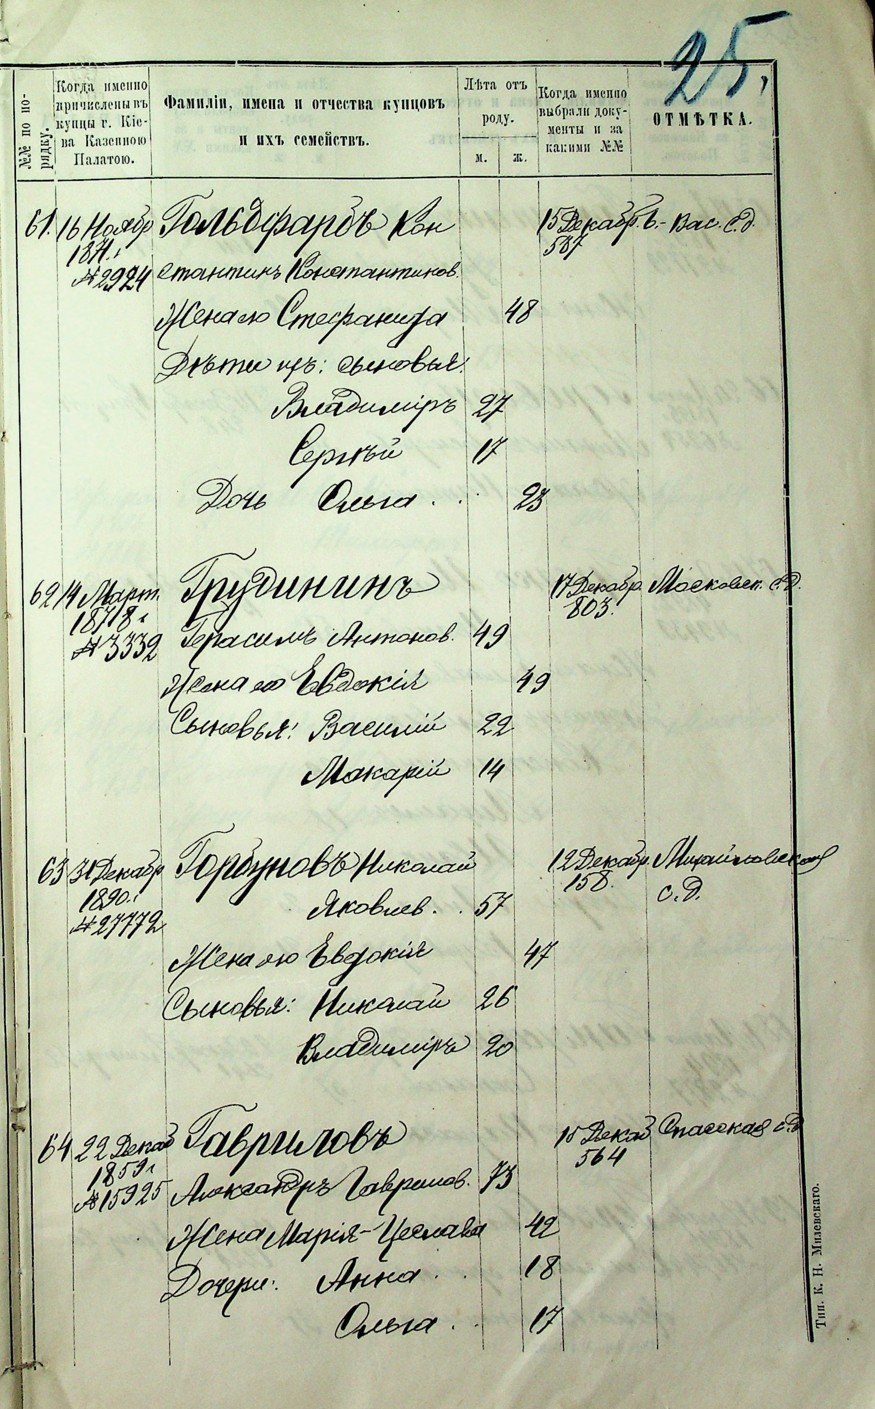 25,
№№ по порядку.
Когда именно
причислены въ
купцы г. Кіе-
ва Казенною
Палатою.
Фамиліи, имена и отчества купцовъ
и ихъ семействъ.
Лѣта отъ
роду.
м. ж.
Когда именно
выбрали доку-
менты и за
какими №№
ОТМѢТКА.
61. 16 Ноябр Гольдфарбъ Кон 15 Декабр. Б.-Вас. с.д.
1871 г. 587
№2924 стантинъ Константинов.
Жена его Стефанида 48
Дѣти ихъ: сыновья:
Владиміръ 27
Сергѣй 17
Дочь Ольга . . 23
62 14 Март. Грудининъ 17 Декабр. Московск. с.д.
1878 г. 803.
№3332 Герасимъ Антонов. 49
Жена его Евдокія 49
Сыновья: Василій 22
Макарій 14
63 31 Декабр Горбуновъ Николай 12 Декабр. Михайловская
1890 г. 158. с.д.
№27772 Яковлев. . 57
Жена его Евдокія 47
Сыновья: Николай 26
Владиміръ 20
64 22 Декаб Гавриловъ 15 Декаб Спасская с.д
1859 г. 564
№15925 Александръ Гаврилов. 73
Жена Марія-Цеслава 42
Дочери: Анна . . 18
Ольга . . 17
Тип. К. Н. Милевскаго.